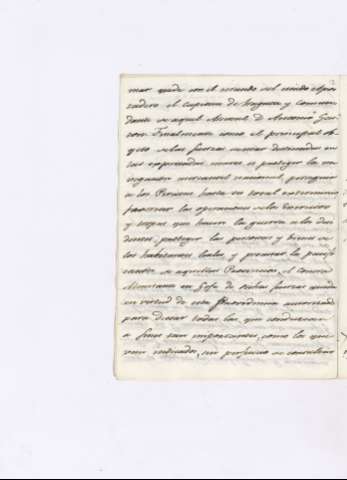 mar nada con el mando del unido Apos-
tadero el Capitan de Fragata y Coman-
dante de aquel Arsenal D. Antonio Gas-
ton. Finalmente como el principal ob-
geto de las fuerzas navales destinadas en
las expresadas mares es proteger la na-
vegacion mercantil nacional, perseguir
a los Piratas hasta su total exterminio
fomentar las operaciones de los Exercitos
y tropas que hacen la guerra a los disi-
dentes, proteger las personas y bienes de
los habitantes leales y procurar la pacifi-
cacion de aquellas Provincias, el Coman-
dante en Gefe de dichas fuerzas queda
en virtud de esta Providencia autorizado
para dictar todas las que conduzcan
a fines tan importantes, como los que
van indicados, sin perjuicio de consultar